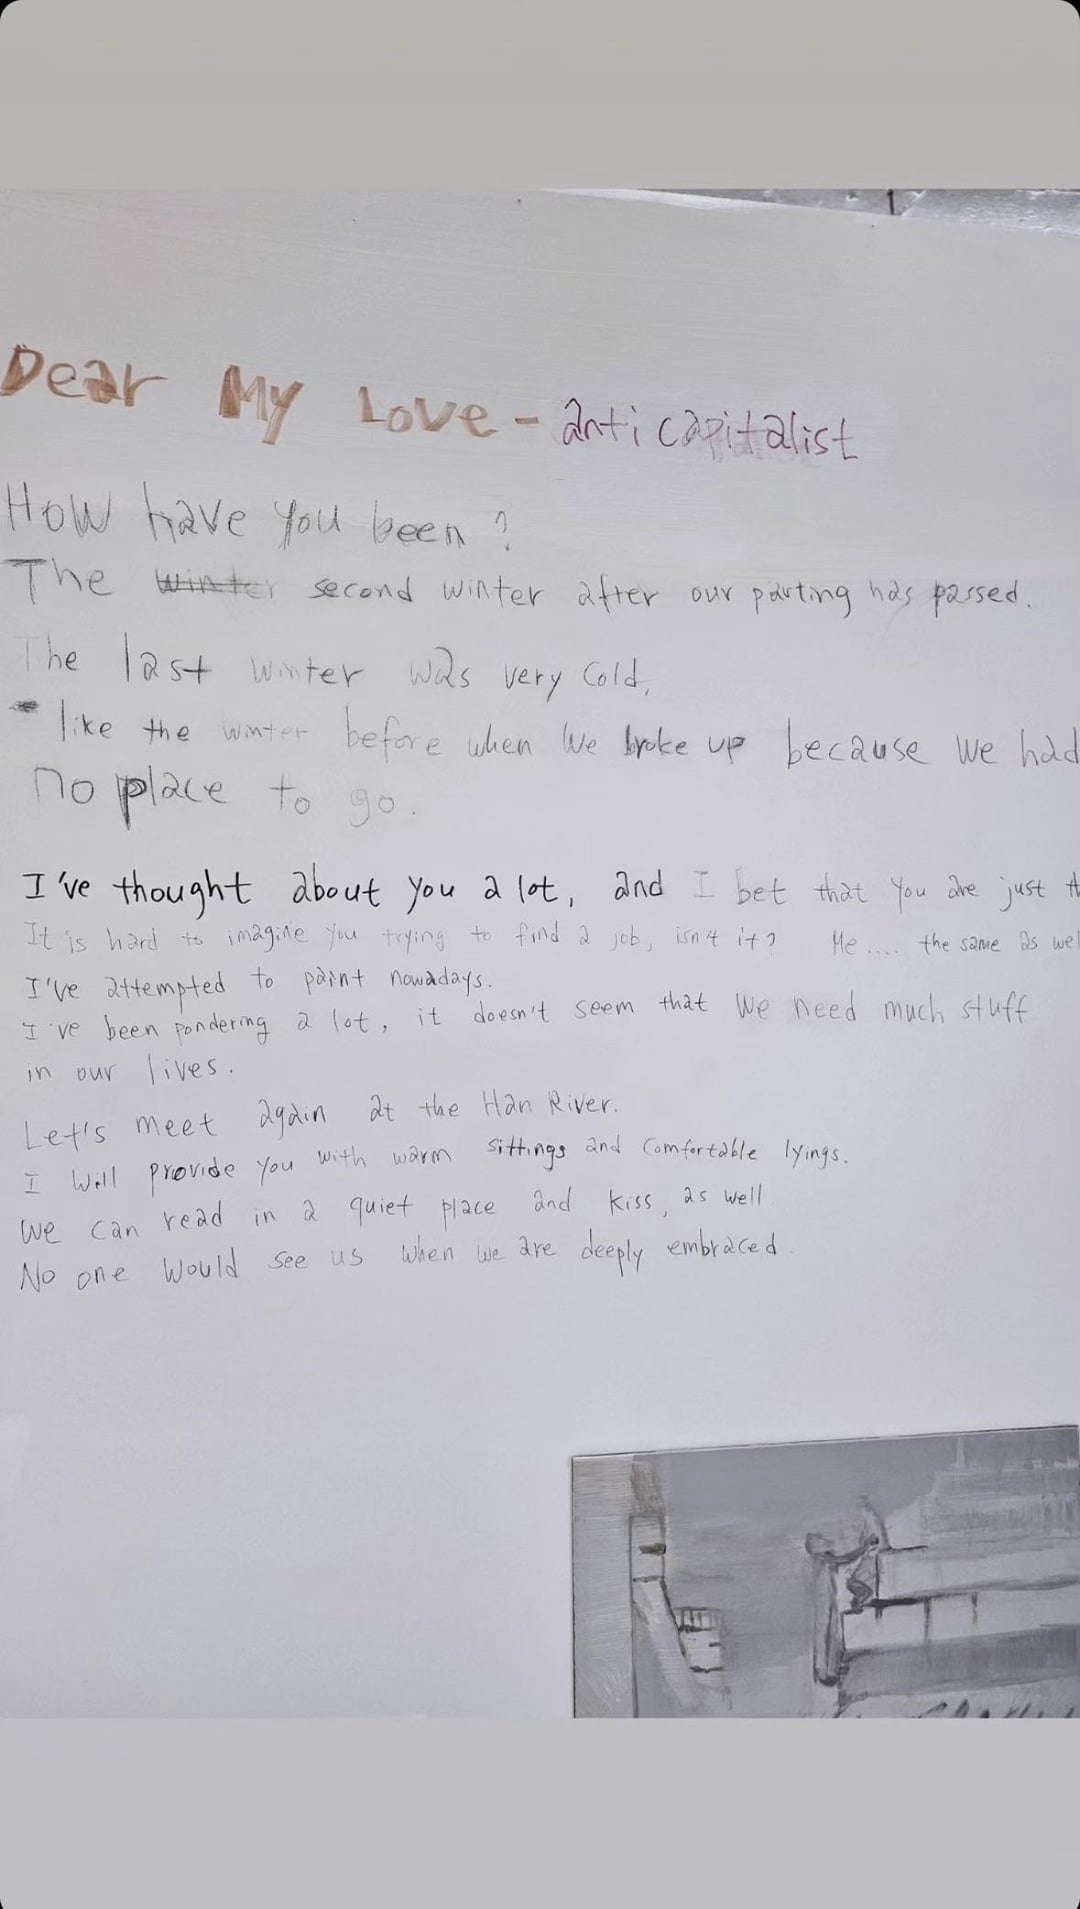 Dear My Love - anticapitalist
How have you been?
The winter second winter after our parting has passed.
The last winter was very cold,
like the winter before when we broke up because we had
no place to go.
I've thought about you a lot, and I bet that you are just
It is hard to imagine you trying to find a job, isn't it? Me.... the same as
I've attempted to paint nowadays.
I've been pondering a lot, it doesn't seem that we need much stuff
in our lives.
Let's meet again at the Han River.
I will provide you with warm sittings and comfortable lyings.
We can read in a quiet place and kiss, as well
No one would see us when we are deeply embraced.